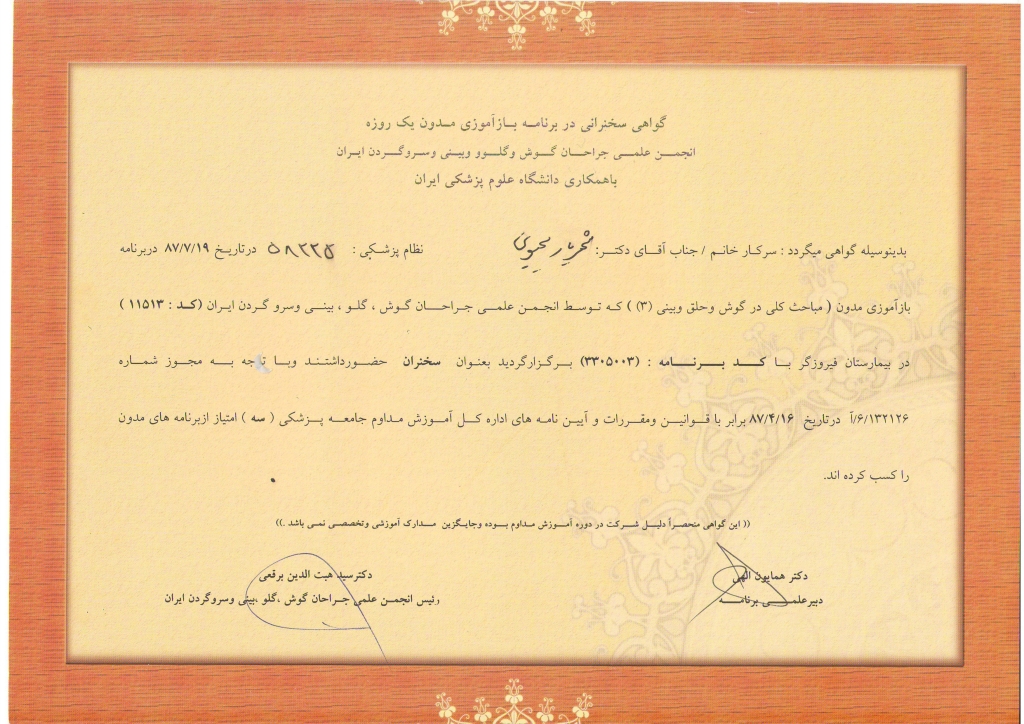 گواهی سخنرانی در برنامه بازآموزی مدون یک روزه
انجمن علمی جراحان گوش وگلوو وبینی وسروگردن ایران
باهمکاری دانشگاه علوم پزشکی ایران
بدینوسیله گواهی میگردد : سرکار خانم / جناب آقای دکتر: شهریار یحیوی نظام پزشکی : ۵۸۲۲۵ درتاریخ ۸۷/۷/۱۹ دربرنامه
بازآموزی مدون ( مباحث کلی در گوش وحلق وبینی (۳) ) که توسط انجمن علمی جراحان گوش ، گلو ، بینی وسرو گردن ایران (کد : ۱۱۵۱۳ )
در بیمارستان فیروزگر با کد برنامه : (۳۳۰۵۰۰۳) برگزارگردید بعنوان سخنران حضورداشتند وبا توجه به مجوز شماره
۶/۱۳۲۱۲۶/آ درتاریخ ۸۷/۴/۱۶ برابر با قوانین ومقررات و آیین نامه های اداره کل آموزش مداوم جامعه پزشکی ( سه ) امتیاز ازبرنامه های مدون
را کسب کرده اند.
(( این گواهی منحصراً دلیل شرکت در دوره آموزش مداوم بوده وجایگزین مدارک آموزشی وتخصصی نمی باشد .))
دکتر همایون الهی
دبیرعلمی برنامه
دکترسید هبت الدین برقعی
رئیس انجمن علمی جراحان گوش ،گلو ،بینی وسروگردن ایران